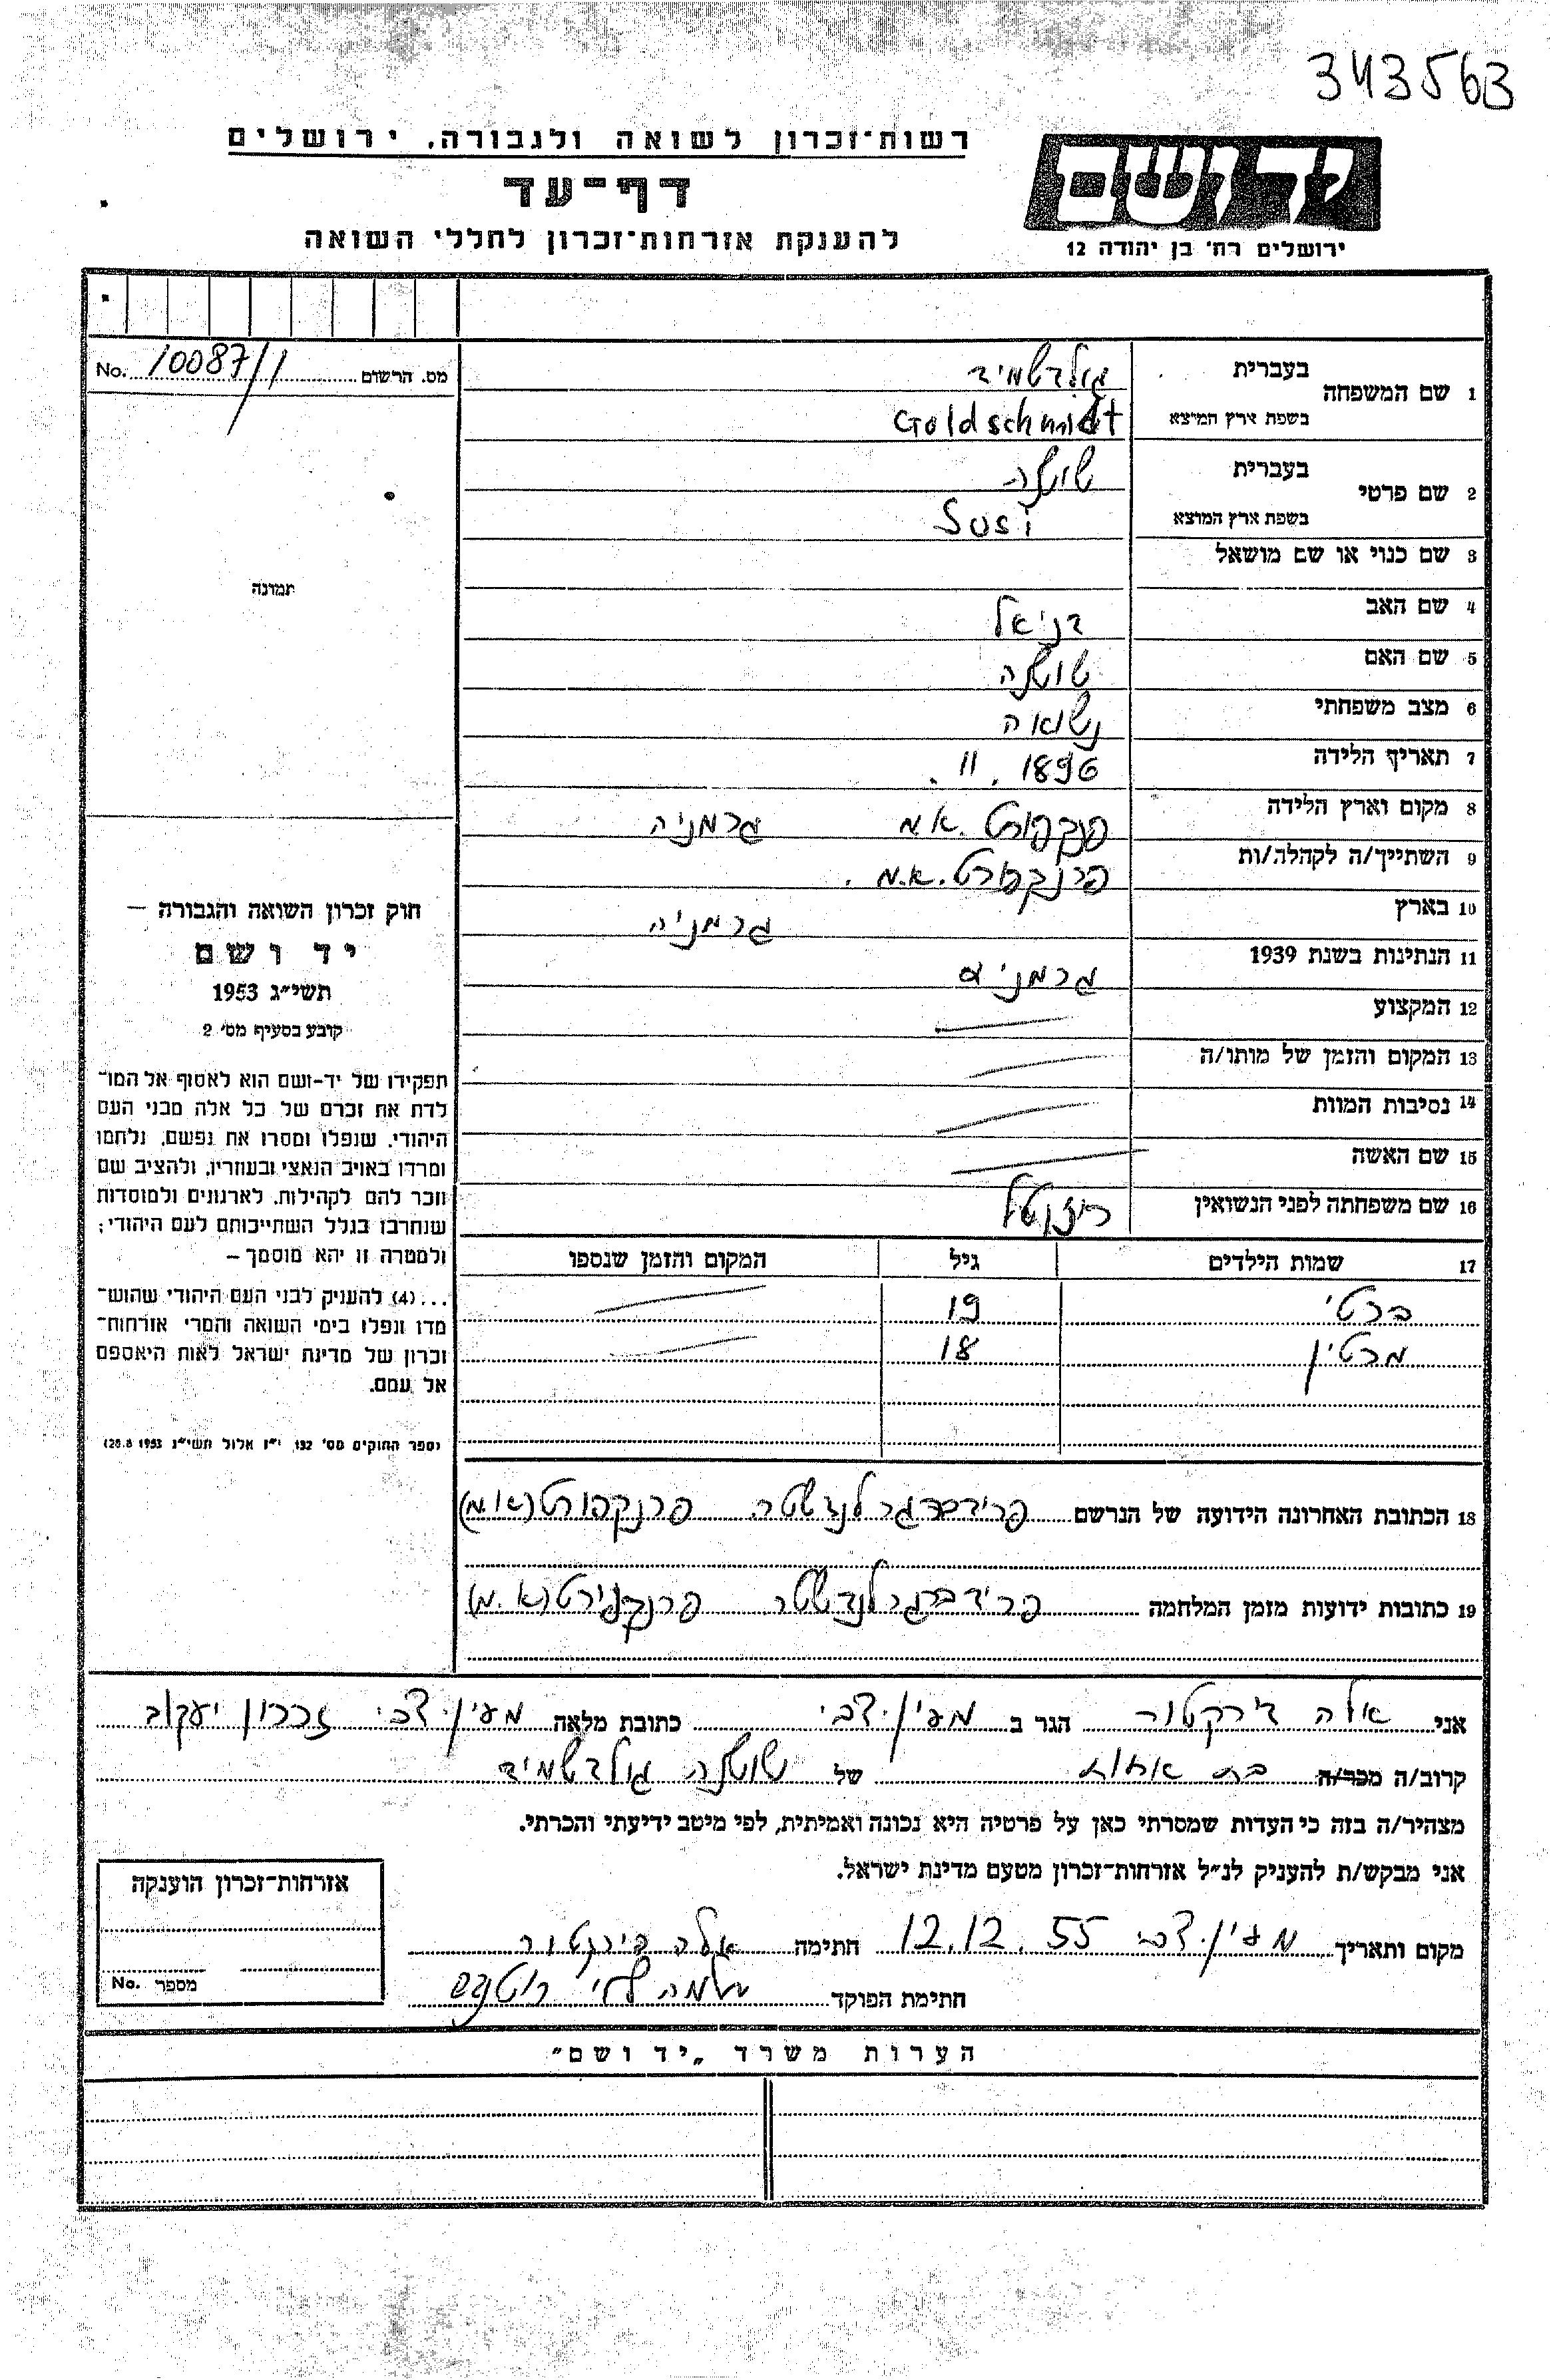 343563
רשות־זכרון לשואה ולגבורה, ירושלים
דף־עד
להענקת אזרחות־זכרון לחללי השואה
יד ושם
ירושלים רח' בן יהודה 12
No. 10087/1 מס. הרשום
תמונה
1 שם המשפחה
בעברית גולדשמיד
בשפת ארץ המוצא Goldschmidt
2 שם פרטי
בעברית שושנה
בשפת ארץ המוצא Susi
3 שם כנוי או שם מושאל
4 שם האב דניאל
5 שם האם שושנה
6 מצב משפחתי נשואה
7 תאריך הלידה 1896 . 11 .
8 מקום וארץ הלידה פנקפורט .א.מ גרמניה
9 השתייך/ה לקהלה/ות פרנקפורט.א.מ.
10 בארץ גרמניה
11 הנתינות בשנת 1939 גרמניה
12 המקצוע
13 המקום והזמן של מותו/ה
14 נסיבות המוות
15 שם האשה
16 שם משפחתה לפני הנשואין
17 שמות הילדים גיל המקום והזמן שנספו
ברטי 19
מרטין 18
18 הכתובת האחרונה הידועה של הנרשם פרידברגר לנדשטר. פרנקפורט (א.מ)
19 כתובות ידועות מזמן המלחמה פרידברגר לנדשטר פרנקפורט (א.מ)
חוק זכרון השואה והגבורה —
יד ושם
תשי״ג 1953
קובע בסעיף מס' 2
תפקידו של יד־ושם הוא לאסוף אל המו־
לדת את זכרם של כל אלה מבני העם
היהודי, שנפלו ומסרו את נפשם, נלחמו
ומרדו באויב הנאצי ובעוזריו, ולהציב שם
וזכר להם לקהילות, לארגונים ולמוסדות
שנחרבו בגלל השתייכותם לעם היהודי;
ולמטרה זו יהא מוסמך —
...(4) להעניק לבני העם היהודי שהוש־
מדו ונפלו בימי השואה והמרי אזרחות־
זכרון של מדינת ישראל לאות היאספם
אל עמם.
(ספר החוקים מס' 132, י״ז אלול תשי״ג 28.8.1953)
אני אלה דירקטור הגר ב מעין.צבי כתובת מלאה מעין.צבי. זכרון יעקוב
קרוב/ה מכר/ה בת אחות של שושנה גולדשמיד
מצהיר/ה בזה כי העדות שמסרתי כאן על פרטיה היא נכונה ואמיתית, לפי מיטב ידיעתי והכרתי.
אני מבקש/ת להעניק לנ״ל אזרחות־זכרון מטעם מדינת ישראל.
מקום ותאריך מעין.צבי 12.12.55 חתימה אלה דירקטור
חתימת הפוקד
אזרחות־זכרון הוענקה
No. מספר
הערות משרד „יד ושם״